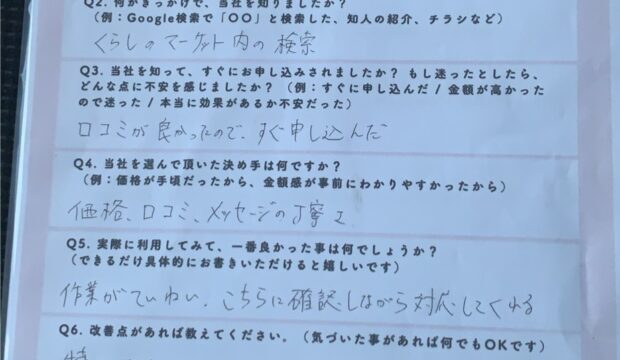 Q2. 何がきっかけで、当社を知りましたか？
（例：Google検索で「〇〇」と検索した、知人の紹介、チラシなど）
くらしのマーケット内の検索
Q3. 当社を知って、すぐにお申し込みされましたか？ もし迷ったとしたら、
どんな点に不安を感じましたか？（例：すぐに申し込んだ / 金額が高かった
ので迷った / 本当に効果があるか不安だった）
口コミが良かったので、すぐ申し込んだ
Q4. 当社を選んで頂いた決め手は何ですか？
（例：価格が手頃だったから、金額感が事前にわかりやすかったから）
価格、口コミ、メッセージの丁寧さ
Q5. 実際に利用してみて、一番良かった事は何でしょうか？
（できるだけ具体的にお書きいただけると嬉しいです）
作業がていねい、こちらに確認しながら対応してくれる
Q6. 改善点があれば教えてください。（気づいた事があれば何でもOKです）
特